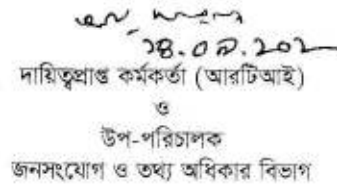 ১৪.০৯.২০২
দায়িত্বপ্রাপ্ত কর্মকর্তা (আরটিআই)
ও
উপ-পরিচালক
জনসংযোগ ও তথ্য অধিকার বিভাগ